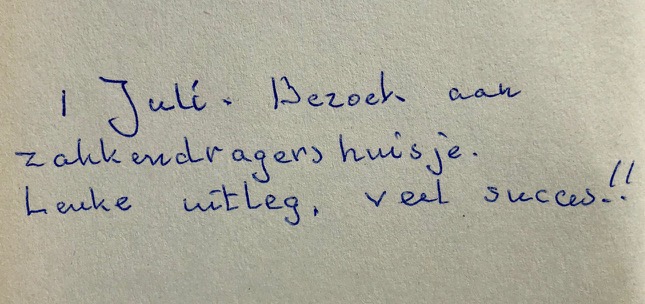 1 Juli. Bezoek aan
zakkendragershuisje.
Leuke uitleg, veel succes.!!